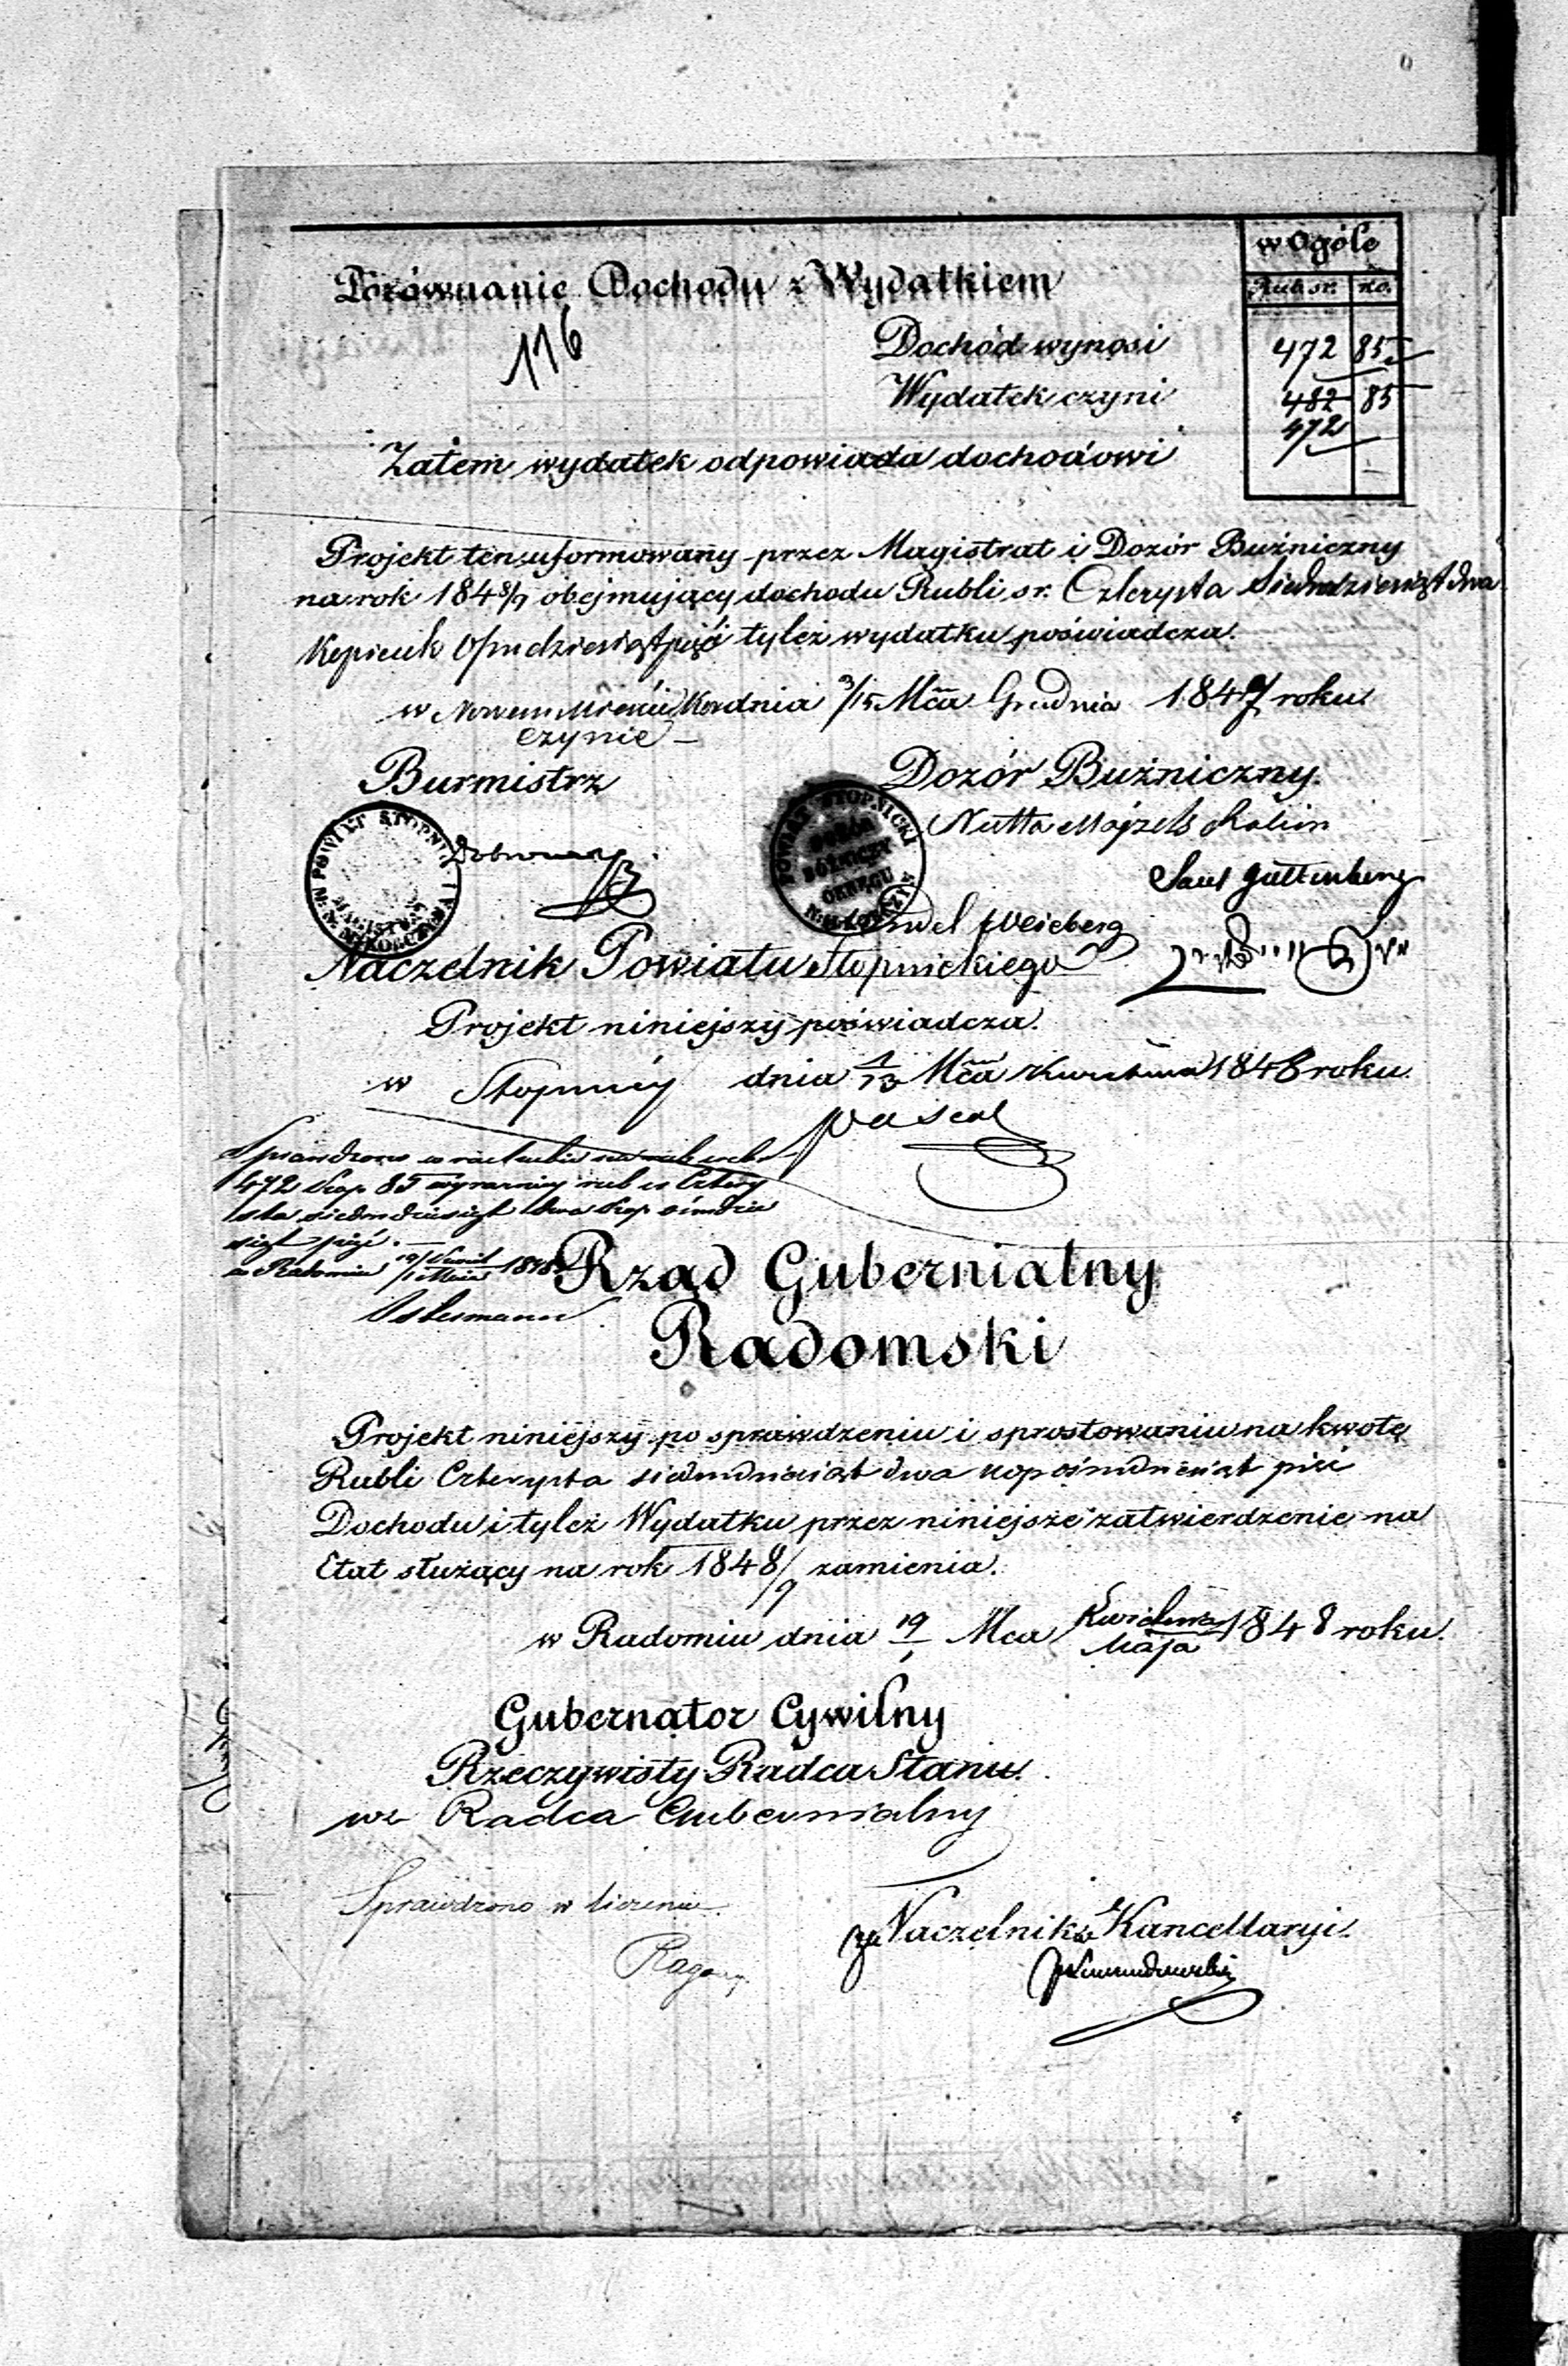 w Ogóle
Rub sr. ko.
Porównanie Dochodu z Wydatkiem
116
Dochód wynosi 472 85
Wydatek czyni 482 85
472
Zatem wydatek odpowiada dochodowi
Projekt ten uformowany przez Magistrat i Dozór Buźniczny
na rok 1848/9 obejmujący dochodu Rubli sr. Czterysta Siedmdziesiąt dwa
Kopieiek Ośmdziesiąt pięć tyleż wydatku poświadcza.
w Nowem Mieście Kor dnia 3/15 Mca Grudnia 1847 roku
czynie
Burmistrz
Dozór Buźniczny.
POWIAT STOPNICKI
MAGISTRAT
POWIAT STOPNICKI
DOZÓR
BÓŻNICZY
OKRĘGU
Nutta Majzels
Saul Guttenberg
Weicberg
Naczelnik Powiatu Stopnickiego
Projekt niniejszy poświadcza.
w Stopnicy dnia 1/13 Mca Kwietnia 1848 roku
Sprawdzono w rachubie na rub
472 kop 85 wyraźniej rub sr Cztery
sta siedmdziesiąt dwa kop ośmdzie
siąt pięć.
w Radomiu 19/1 Kwiet/Maia 1848
Rząd Gubernialny
Radomski
Projekt niniejszy po sprawdzeniu i sprostowaniu na kwotę
Rubli Czterysta siedmdziesiąt dwa kop ośmdziesiąt pięć
Dochodu i tyleż Wydatku przez niniejsze zatwierdzenie na
Etat służący na rok 1848/9 zamienia.
w Radomiu dnia 19/1 Mca Kwietnia/Maja 1848 roku.
Gubernator Cywilny
Rzeczywisty Radca Stanu.
wz Radca Gubernialny
Sprawdzono w liczeniu
za Naczelnika Kancellaryi.